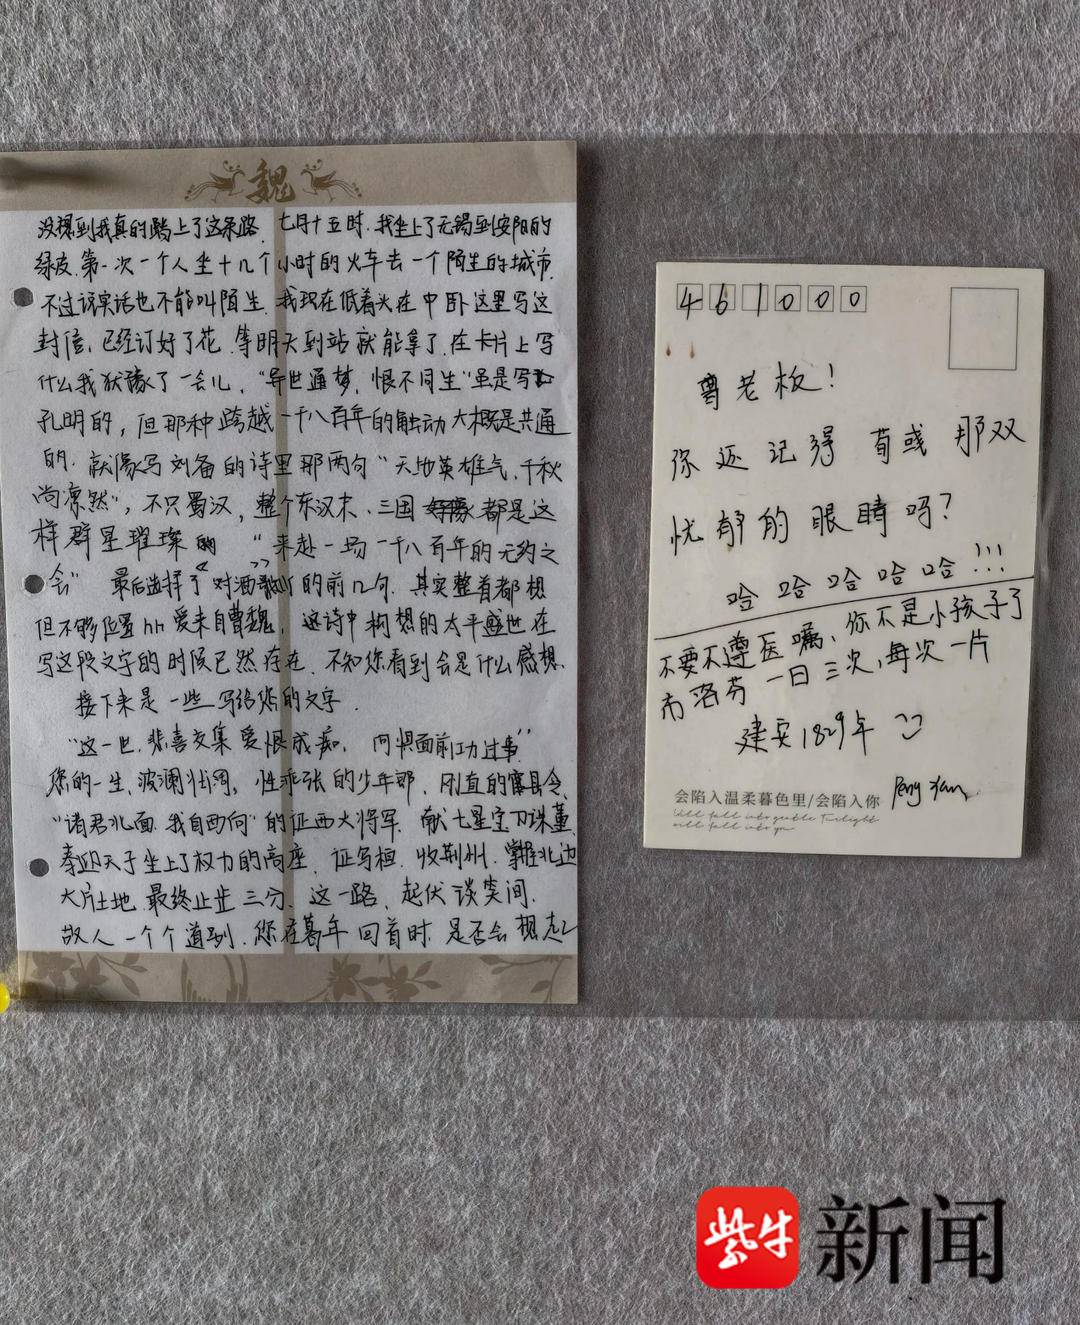 魏
没想到我真的踏上了这条路. 七月十五时. 我坐上了无锡到安阳的
绿皮. 第一次一个人坐十几个小时的火车去一个陌生的城市.
不过说实话也不能叫陌生. 我现在低着头在中卧这里写这
封信, 已经订好了花. 等明天到站就能拿了. 在卡片上写
什么我犹豫了一会儿, "异世通梦, 恨不同生"虽是写
孔明的, 但那种跨越一千八百年的触动大概是共通
的. 就像写刘备的诗里那两句"天地英雄气, 千秋
尚凛然", 不只蜀汉, 整个东汉末、三国都是这
样群星璀璨的 "来赴一场一千八百年的无约之
会" 最后选择了"对酒歌"的前几句. 其实整首都想
但不够位置 hh 爱来自曹魏, 这诗中构想的太平盛世在
写这段文字的时候已然存在. 不知您看到会是什么感想.
接下来是一些写给您的文字.
"这一世, 悲喜交集 爱恨成痴, 问惧面前功过事"
您的一生, 波澜壮阔, 性乖张的少年郎, 刚直的县令,
"诸君北面, 我自西向"的征西大将军. 献七星宝刀诛董,
奉迎天子坐上了权力的高座. 征乌桓. 收荆州. 掌握北边
大片土地. 最终止步三分. 这一路, 起伏谈笑间.
故人一个个道别. 您在暮年回首时. 是否会想起
461000
曹老板!
你还记得荀彧那双
忧郁的眼睛吗?
哈哈哈哈哈!!!
不要不遵医嘱, 你不是小孩子了
布洛芬一日三次, 每次一片
建安1829年
会陷入温柔暮色里/会陷入你
Will fall into gentle Twilight
will fall into you
紫牛新闻